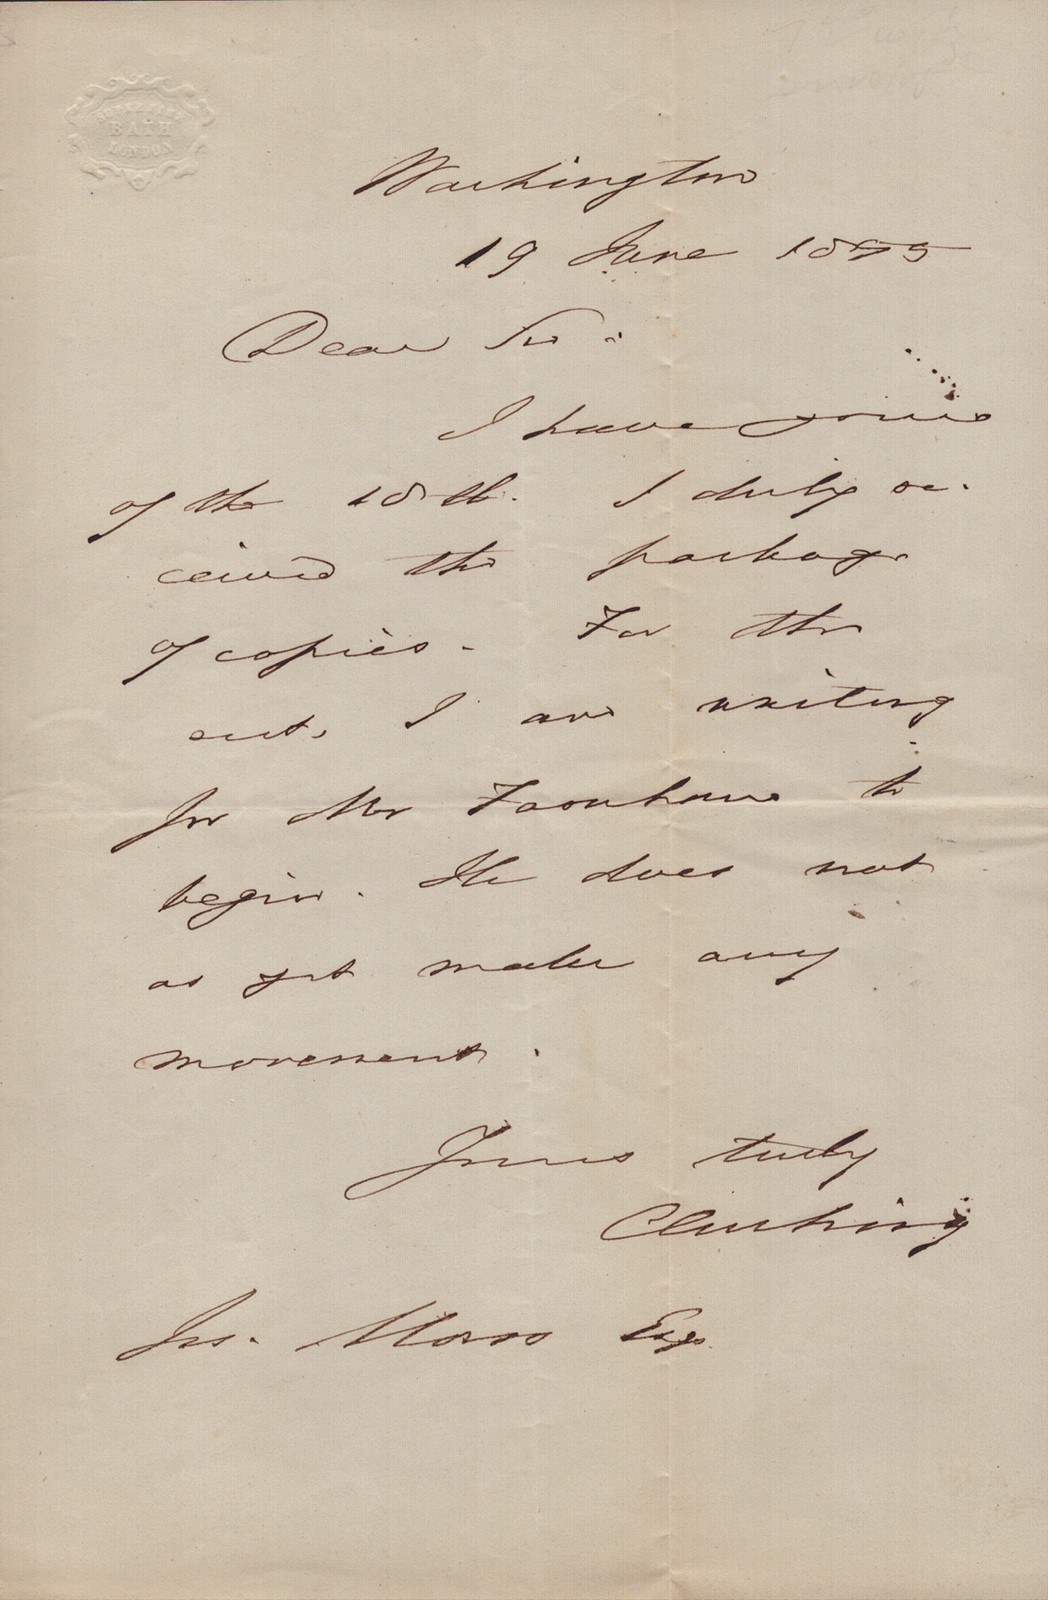 BATH
LONDON
Washington
19 June 1855
Dear Sir:
I have yours
of the 18th. I duly re-
ceived the package
of copies. For the
rest, I am waiting
for Mr Farnham to
begin. He does not
as yet make any
movement.
Yours truly
CCushing
Jos. Moss Esq